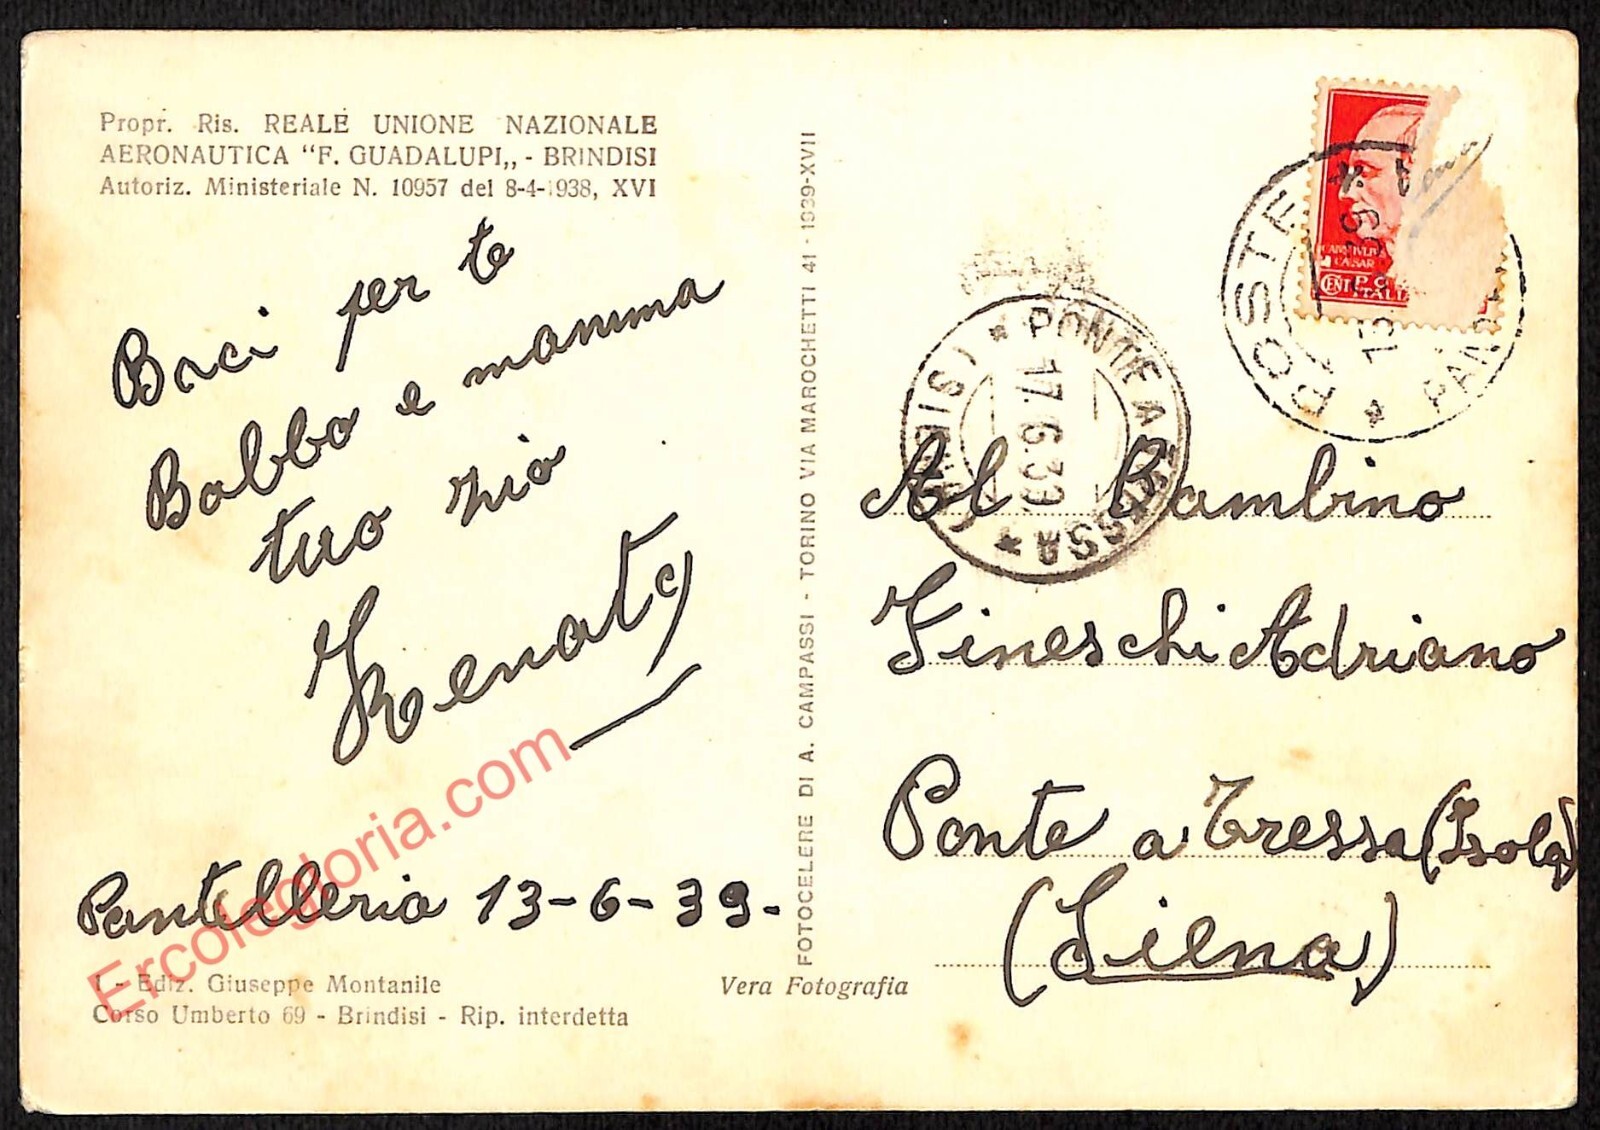 Propr. Ris. REALE UNIONE NAZIONALE
AERONAUTICA "F. GUADALUPI,, - BRINDISI
Autoriz. Ministeriale N. 10957 del 8-4-1938, XVI
Baci per te
Babbo e mamma
tuo zio
Renato
Pantelleria 13-6-39-
1 - Ediz. Giuseppe Montanile
Corso Umberto 69 - Brindisi - Rip. interdetta
Vera Fotografia
FOTOCELERE DI A. CAMPASSI - TORINO VIA MAROCHETTI 41 - 1939-XVII
POSTE
PONTE A TRESSA
17.6.39
CENT
ITALIA
Al Bambino
Fineschi Adriano
Ponte a Tressa (Isola)
(Siena)
Ercolegloria.com